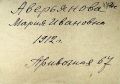 Аверьянова
Мария Ивановна
1912 г.
Арживанная 67